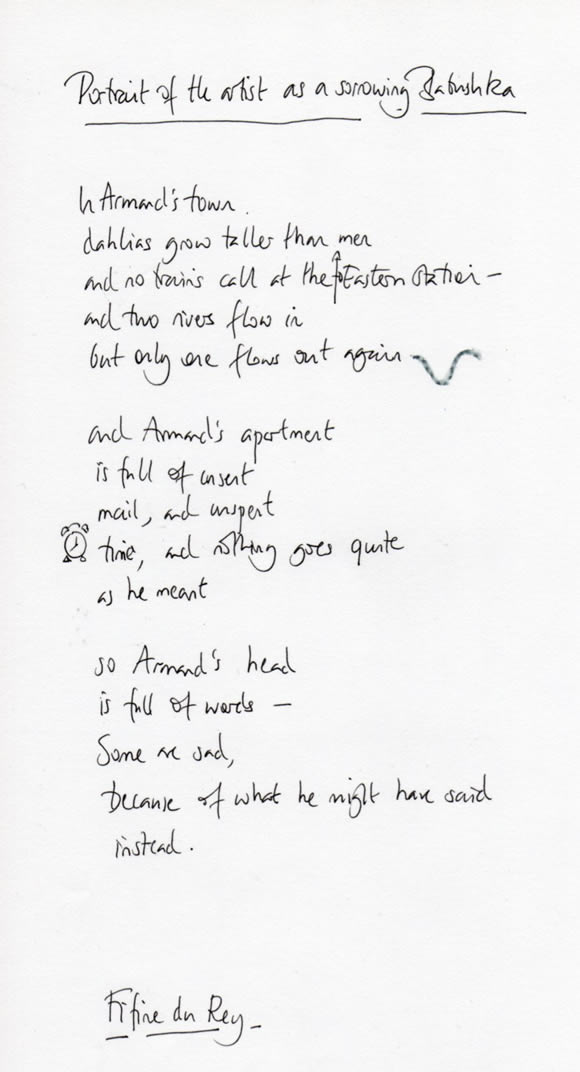 Portrait of the artist as a sorrowing Babushka
In Armand's town.
dahlias grow taller than men
and no trains call at the Eastern Station –
and two rivers flow in
but only one flows out again
and Armand's apartment
is full of unsent
mail, and unspent
time, and nothing goes quite
as he meant
so Armand's head
is full of words –
Some are sad,
because of what he might have said
instead.
Fifine du Rey –